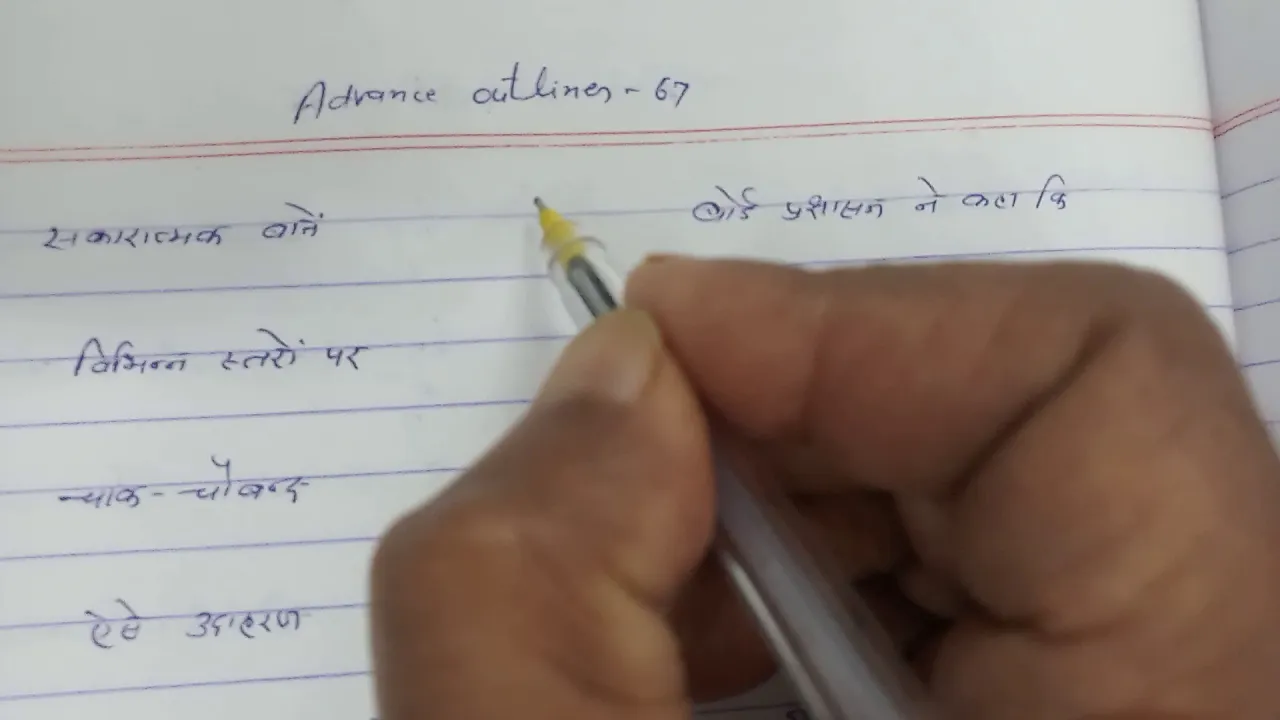 Advance outlines - 67
सकारात्मक बातें
बोर्ड प्रशासन ने कहा कि
विभिन्न स्तरों पर
चाक-चौबन्द
ऐसे उदाहरण